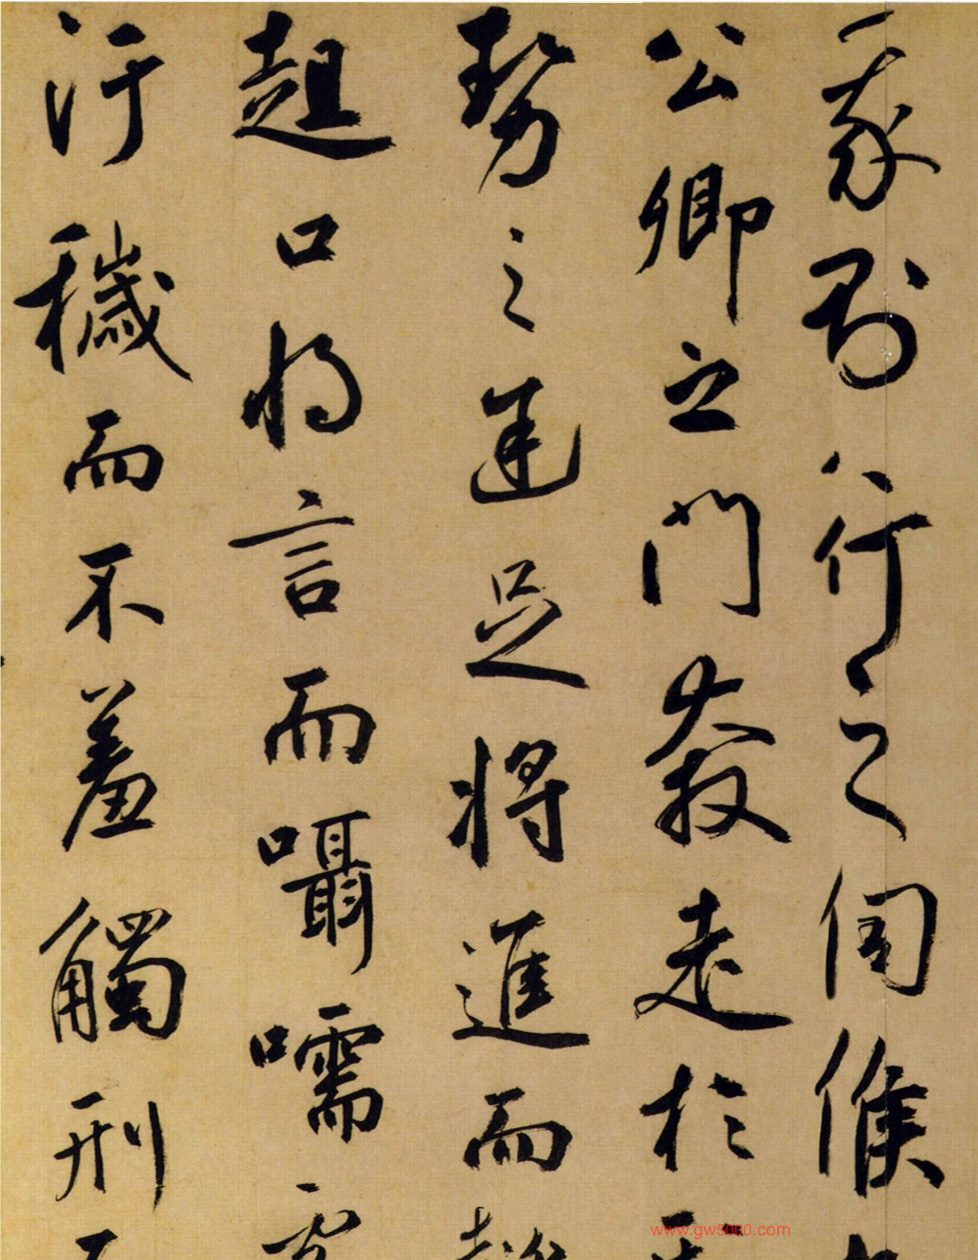 我則行之伺候
公卿之門奔走於
勢之途足將進而
趄口將言而囁嚅
汙穢而不羞觸刑